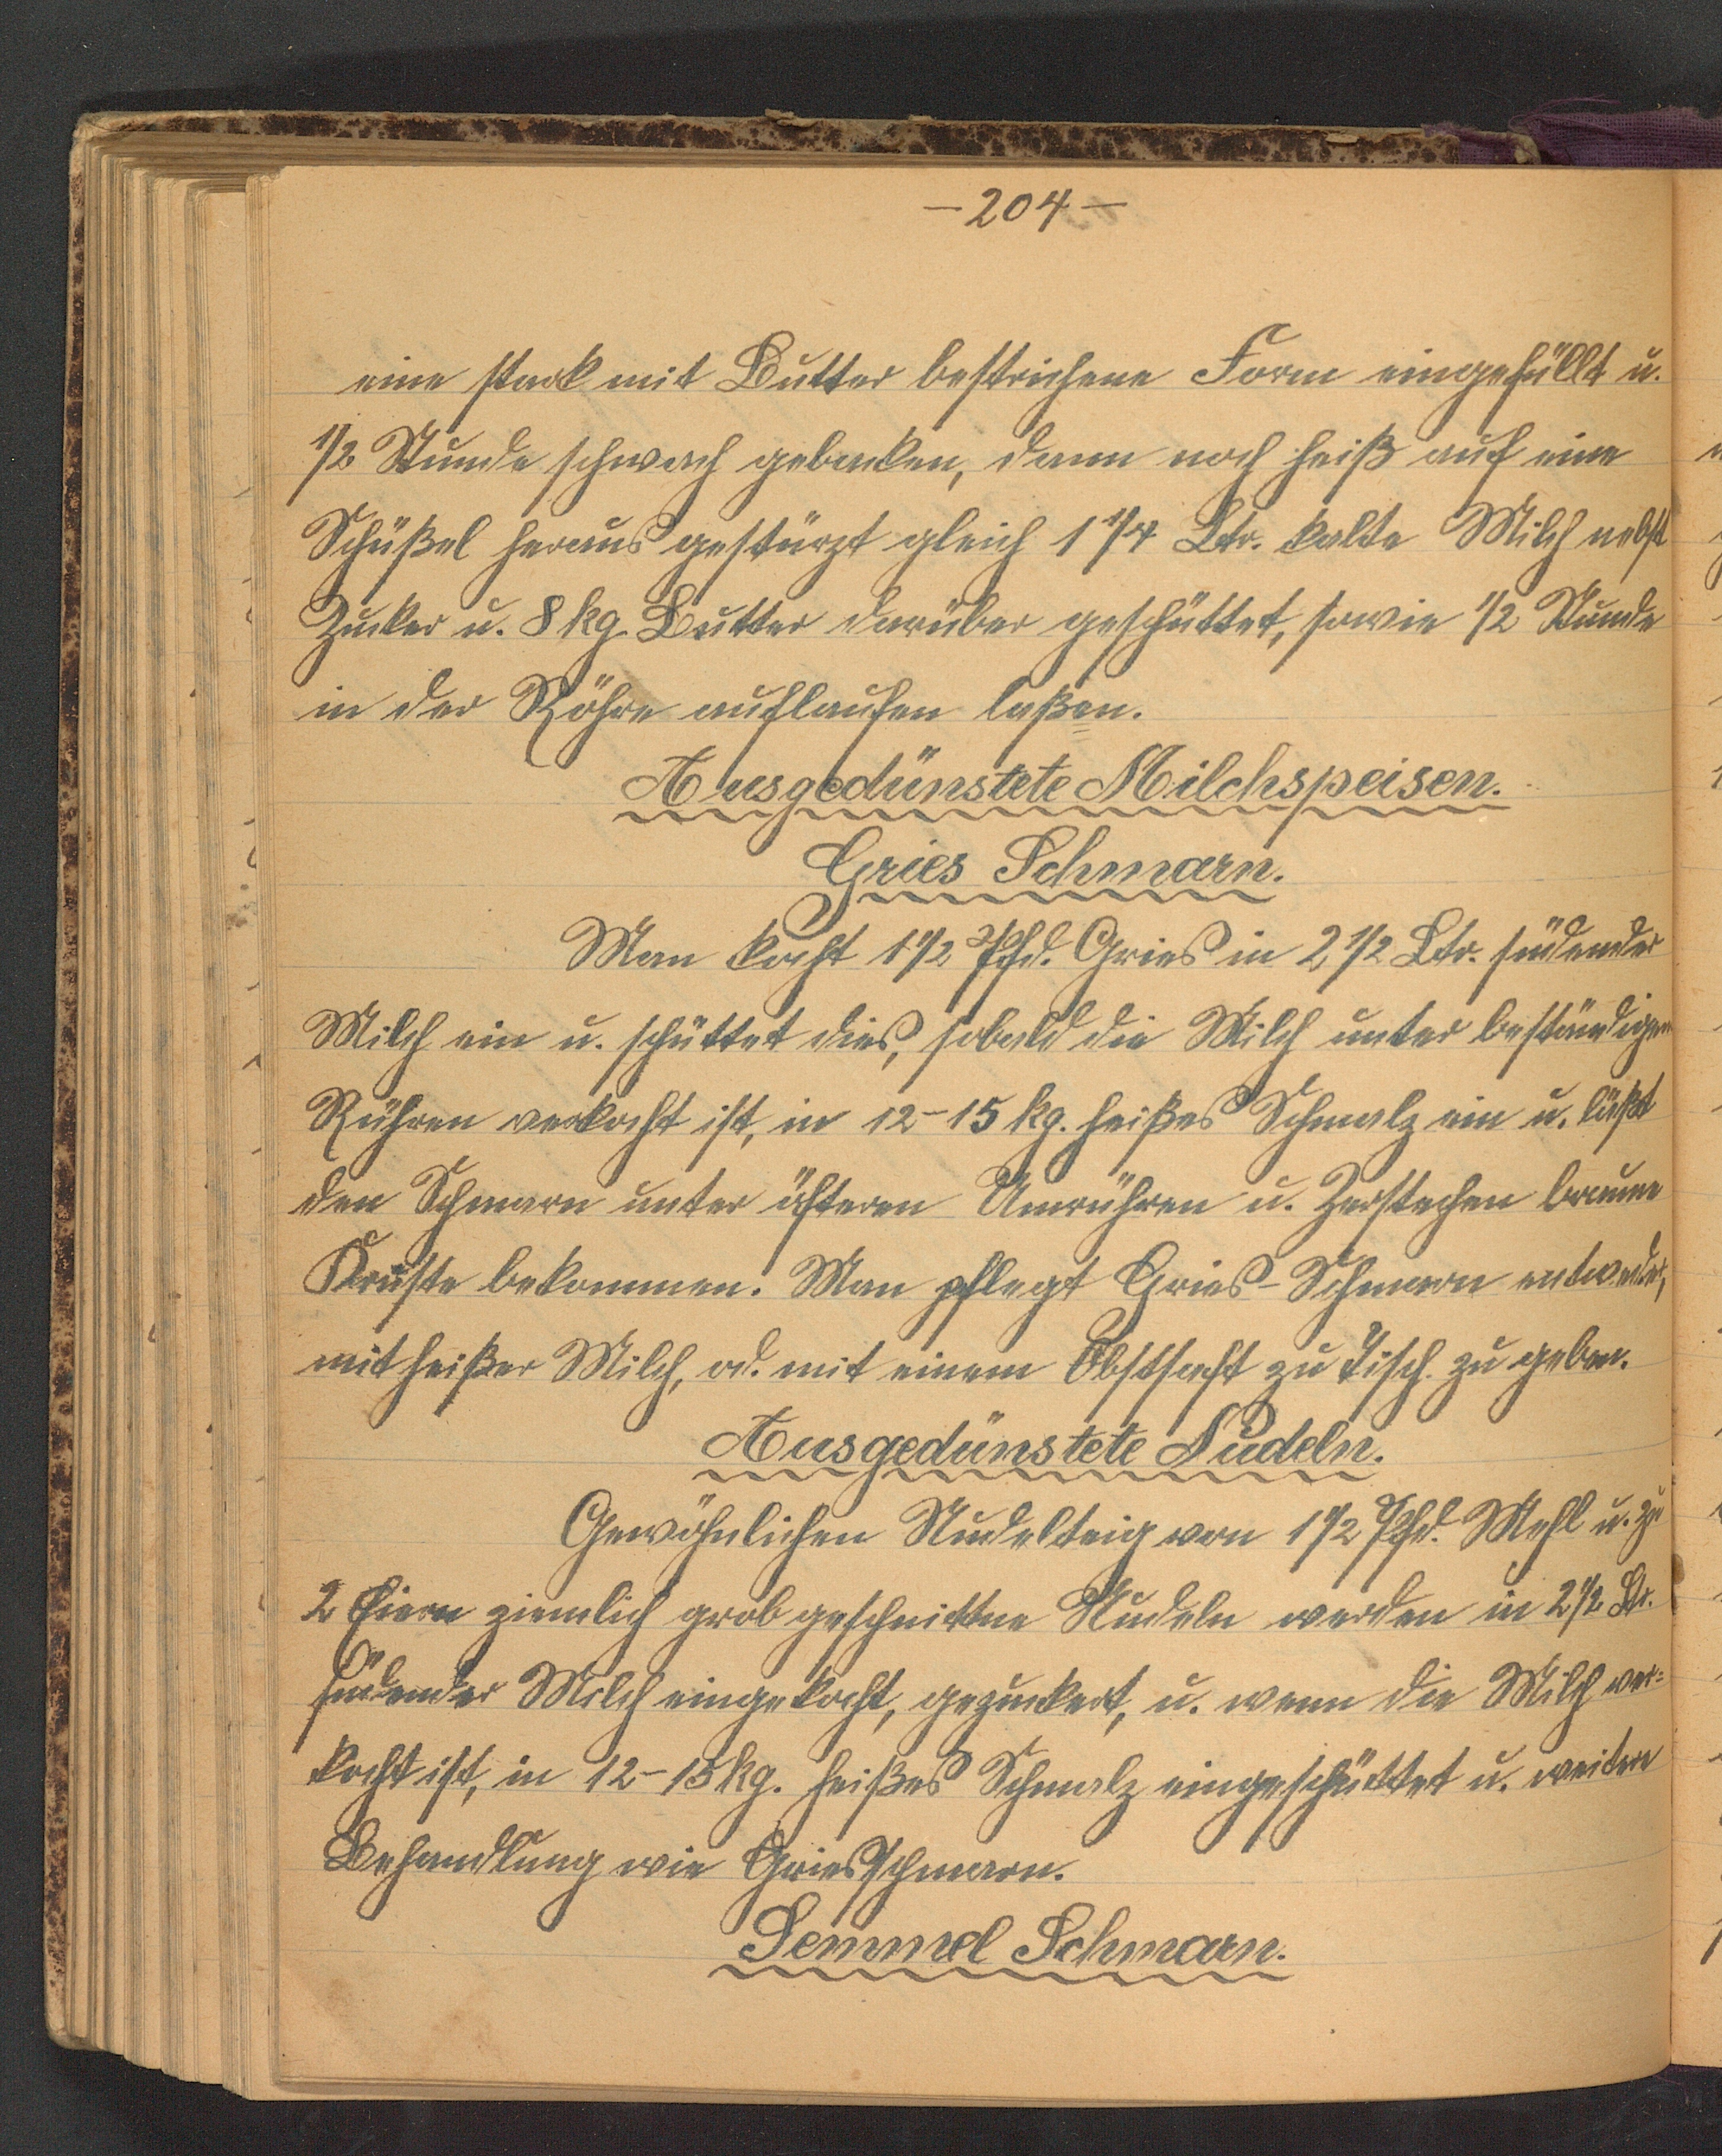 — 204 —
eine stark mit Butter bestrichene Form eingefüllt u.
1/2 Stunde schwach gebacken, dann noch heiß auf eine
Schüßel heraus gestürzt gleich 1 1/4 Ltr. kalte Milch nebst
Zucker u. 8 kg. Butter darüber geschüttet, sowie 1/2 Stunde
in der Röhre auflaufen laßen.
Ausgedünstete Milchspeisen.
Gries Schmarn.
Man kocht 1 1/2 Pfd. Gries in 2 1/2 Ltr. südender
Milch ein u. schüttet dies, sobald die Milch unter beständigen
Rühren verkocht ist, in 12-15 kg. heißes Schmalz ein u. läßt
den Schmarn unter öfteren Umrühren u. Zerstechen braune
Kruste bekommen. Man pflegt Gries-Schmarn entweder,
mit heißer Milch, od. mit einem Obstsaft zu Tisch zu geben.
Ausgedünstete Nudeln.
Gewöhnlichen Nudelteig von 1 1/2 Pfd. Mehl u. zu
2 Eiern ziemlich grob geschnittne Nudeln werden in 2 1/2 Ltr.
südender Milch eingekocht, gezuckert, u. wenn die Milch ver=
kocht ist, in 12-15 kg. heißes Schmalz eingeschüttet u. weitere
Behandlung wie Griesschmarn.
Semmel Schmarn.